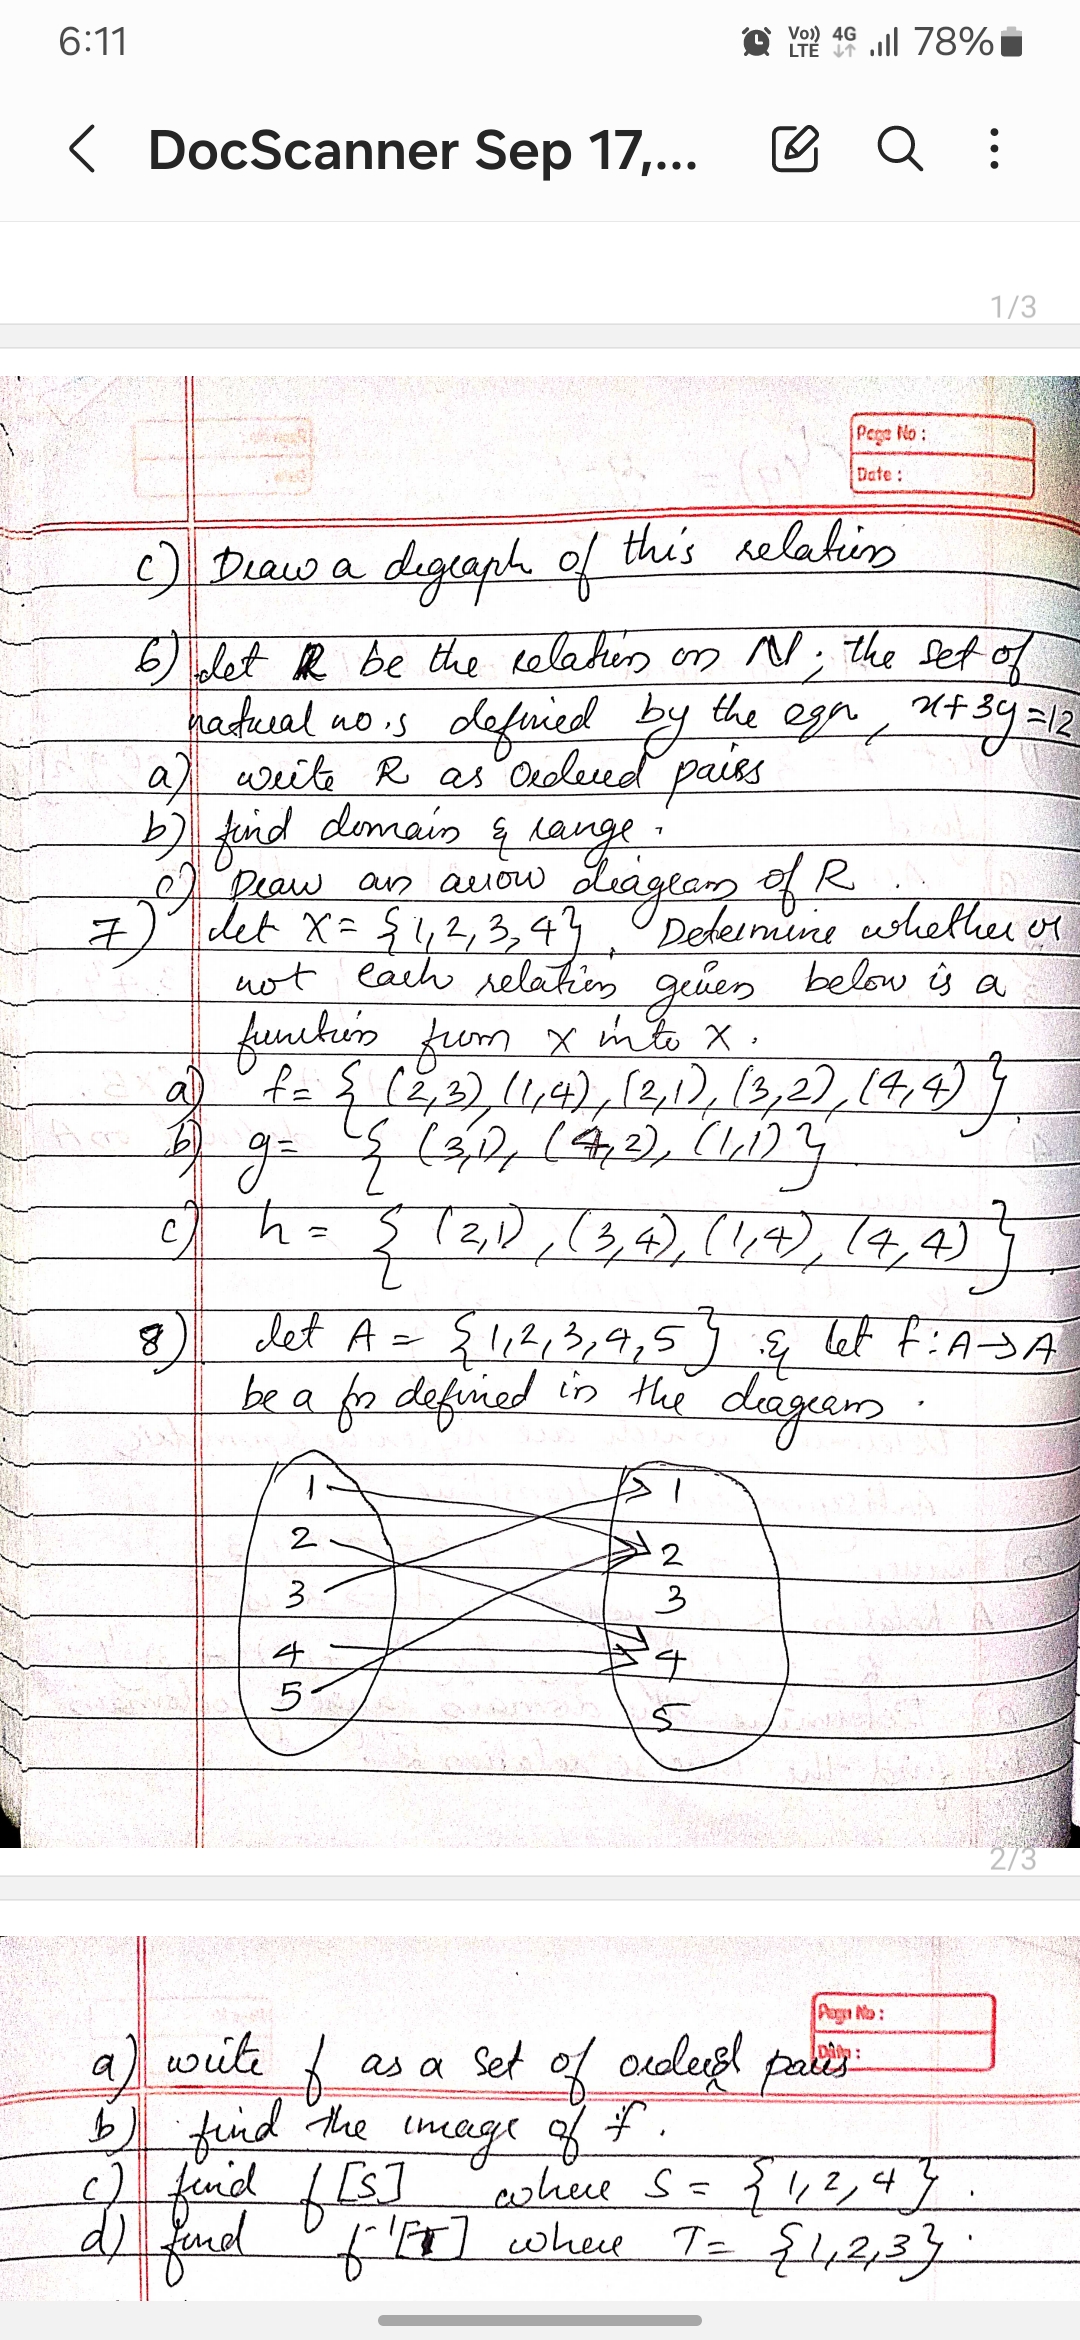 6:11 Vo)) LTE 4G 78%
DocScanner Sep 17,...
1/3
Page No :
Date :
c) Draw a digraph of this relation
6) Let R be the relation on N; the set of
natural no.s defined by the eqn, x+3y=12
a) write R as ordered pairs
b) find domain & range.
c) Draw an arrow diagram of R.
7) Let X = {1,2,3,4}. Determine whether or
not each relation given below is a
function from X into X.
a) f = { (2,3), (1,4), (2,1), (3,2), (4,4) }
b) g = { (3,1), (4,2), (1,1) }
c) h = { (2,1), (3,4), (1,4), (4,4) }
8) Let A = {1,2,3,4,5} & let f: A→A
be a fn defined in the diagram.
1 1
2 2
3 3
4 4
5 5
2/3
Page No :
Date :
a) write f as a set of ordered pairs
b) find the image of f.
c) find f[S] where S = {1,2,4}.
d) find f⁻¹[T] where T = {1,2,3}.